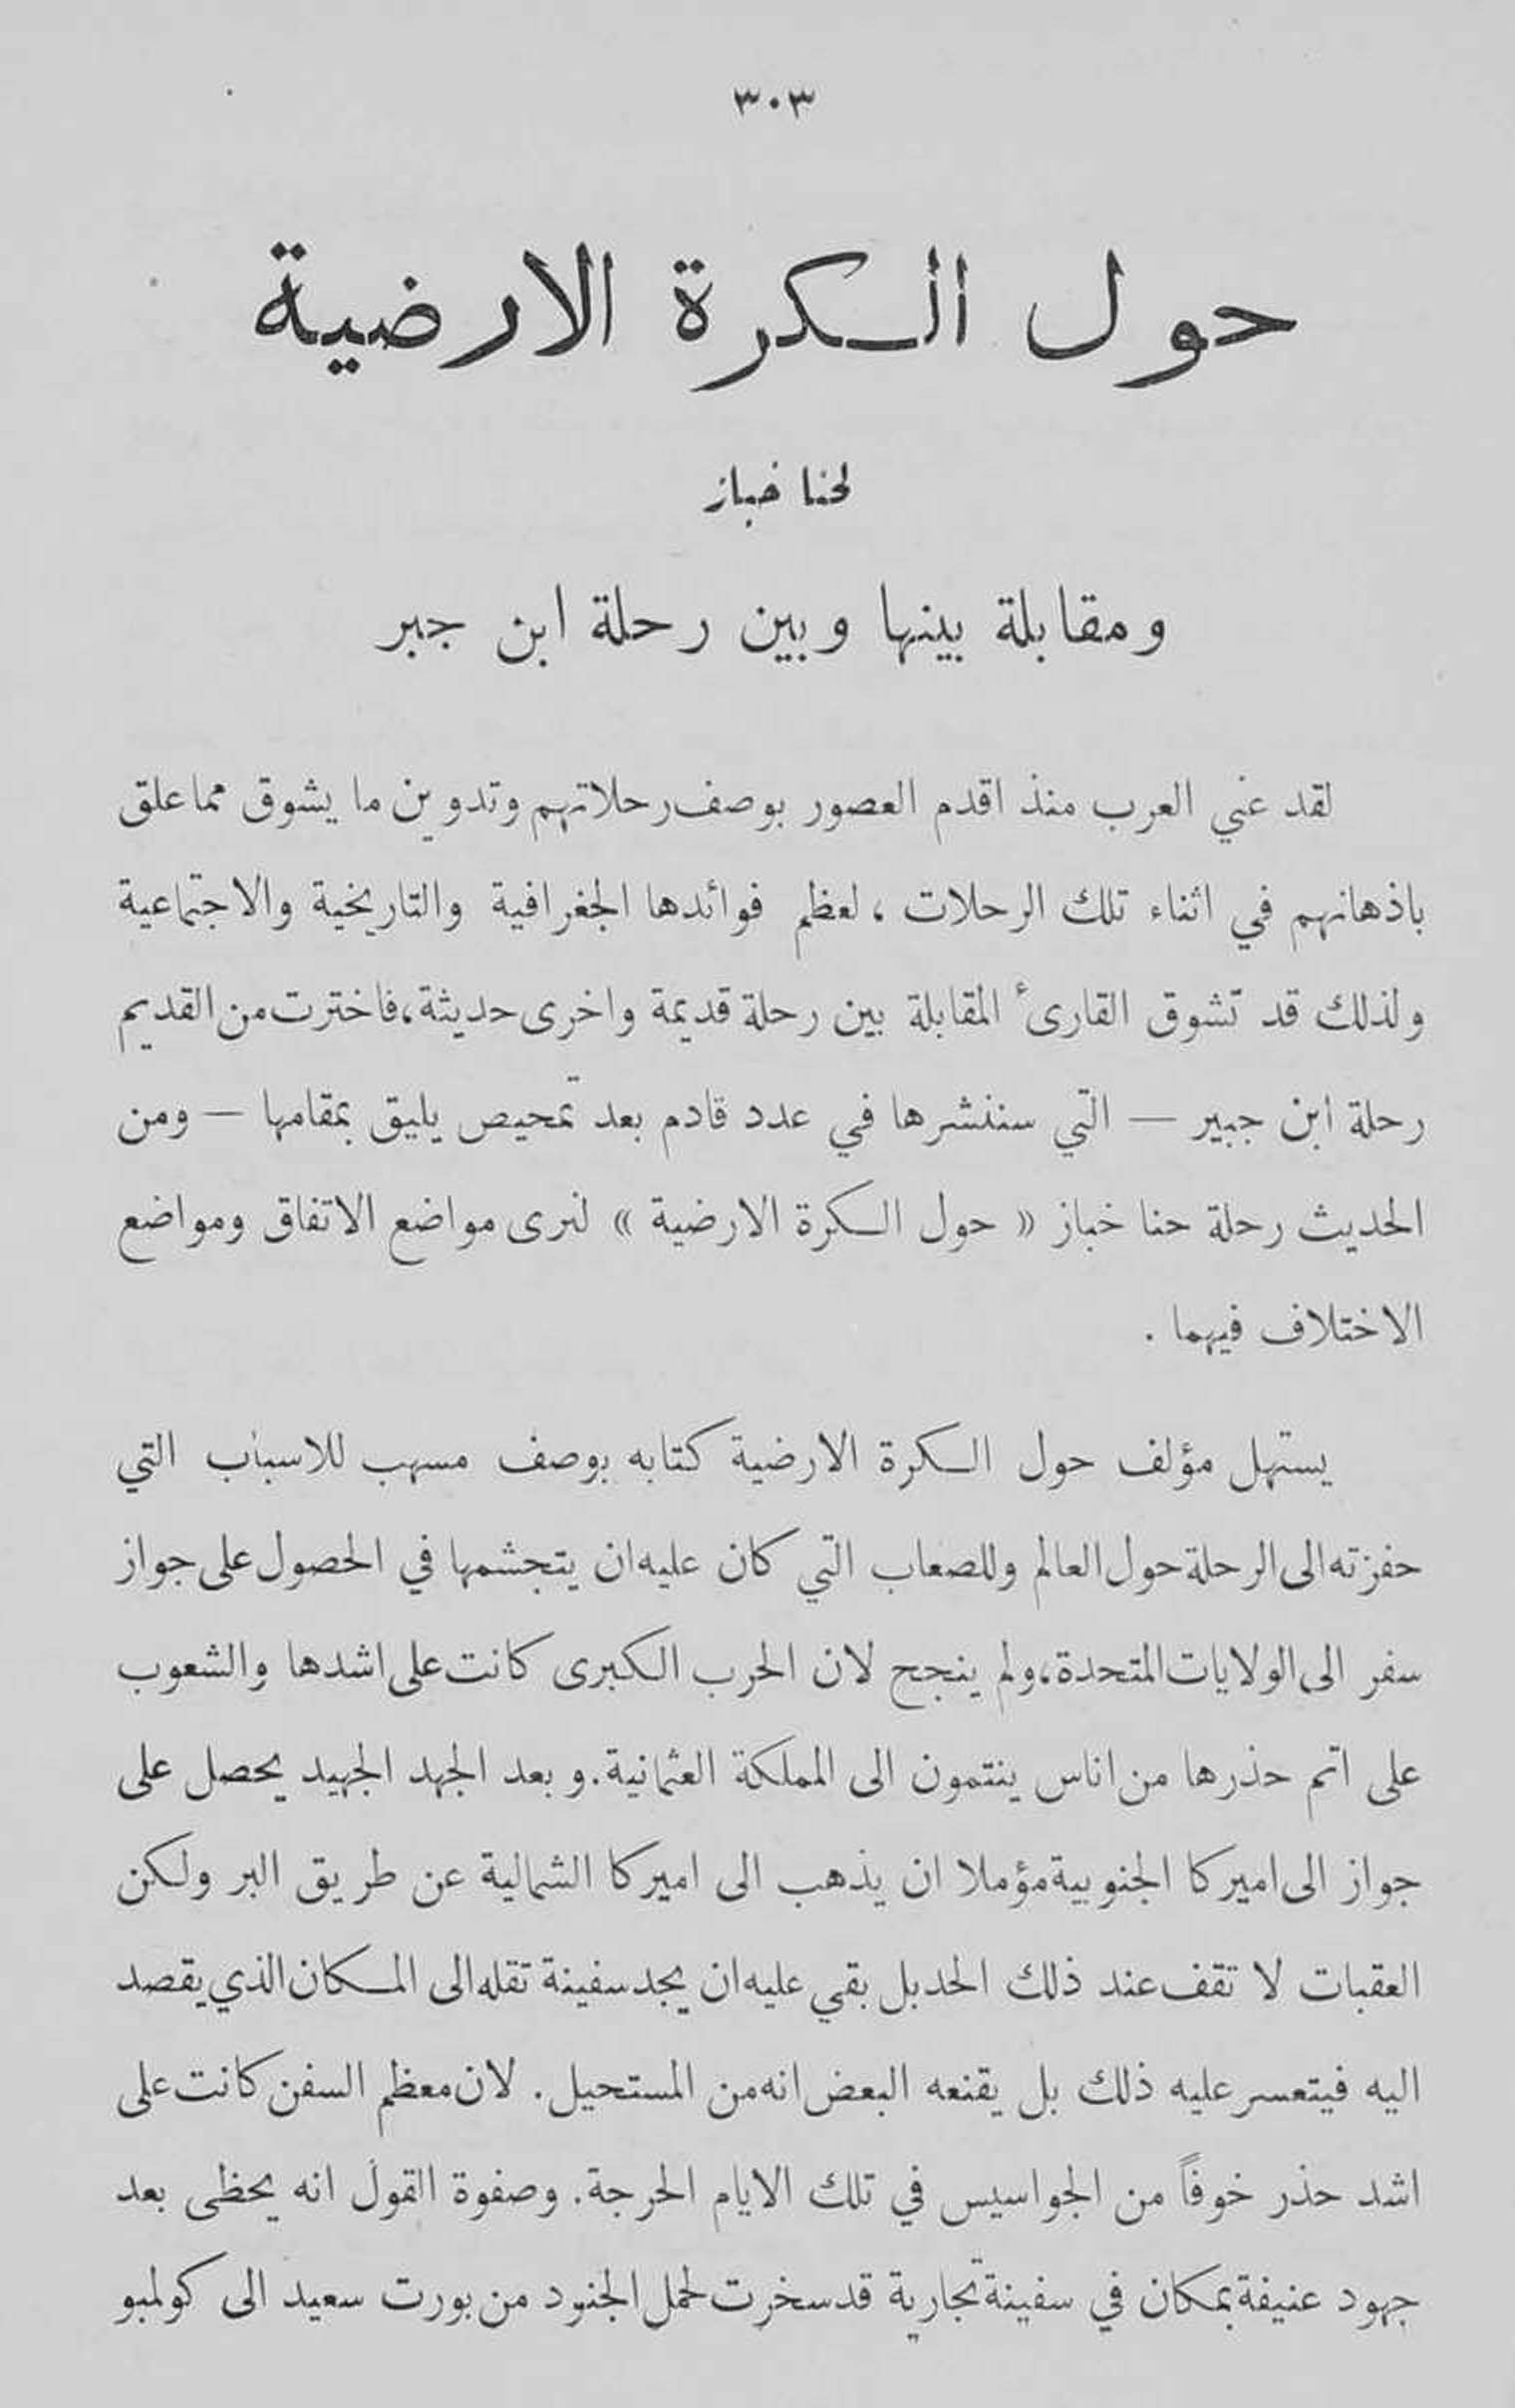 ٣٠٣
حول الكرة الارضية
لحنا خباز
ومقابلة بينها وبين رحلة ابن جبر
لقد عني العرب منذ اقدم العصور بوصف رحلاتهم وتدوين ما يشوق مما علق
باذهانهم في اثناء تلك الرحلات ، لعظم فوائدها الجغرافية والتاريخية والاجتماعية
ولذلك قد تشوق القارئ المقابلة بين رحلة قديمة واخرى حديثة، فاخترت من القديم
رحلة ابن جبير — التي سننشرها في عدد قادم بعد تمحيص يليق بمقامها — ومن
الحديث رحلة حنا خباز « حول الكرة الارضية » لنرى مواضع الاتفاق ومواضع
الاختلاف فيهما .
يستهل مؤلف حول الكرة الارضية كتابه بوصف مسهب للاسباب التي
حفزته الى الرحلة حول العالم وللصعاب التي كان عليه ان يتجشمها في الحصول على جواز
سفر الى الولايات المتحدة، ولم ينجح لان الحرب الكبرى كانت على اشدها والشعوب
على اتم حذرها من اناس ينتمون الى المملكة العثمانية. وبعد الجهد الجهيد يحصل على
جواز الى اميركا الجنوبية مؤملا ان يذهب الى اميركا الشمالية عن طريق البر ولكن
العقبات لا تقف عند ذلك الحد بل بقي عليه ان يجد سفينة تقله الى المكان الذي يقصد
اليه فيتعسر عليه ذلك بل يقنعه البعض انه من المستحيل . لان معظم السفن كانت على
اشد حذر خوفاً من الجواسيس في تلك الايام الحرجة. وصفوة القول انه يحظى بعد
جهود عنيفة بمكان في سفينة تجارية قد سخرت لحمل الجنود من بورت سعيد الى كولمبو